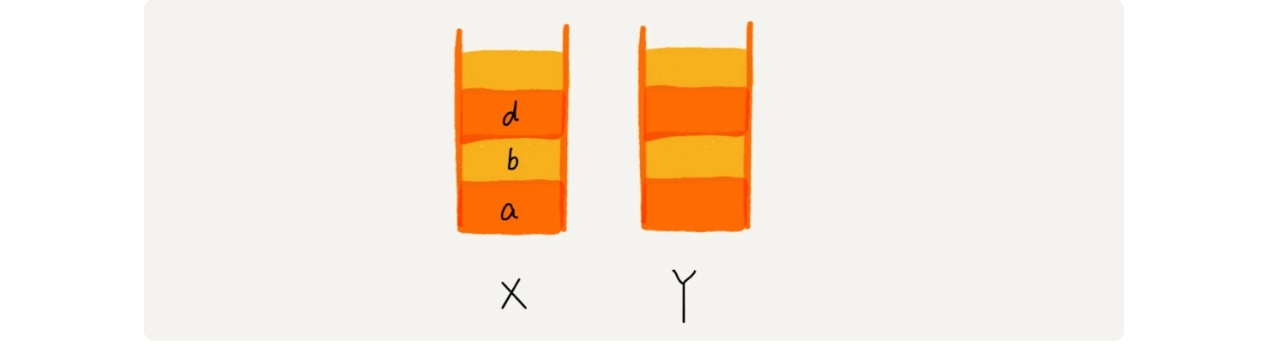 d
b
a
X
Y